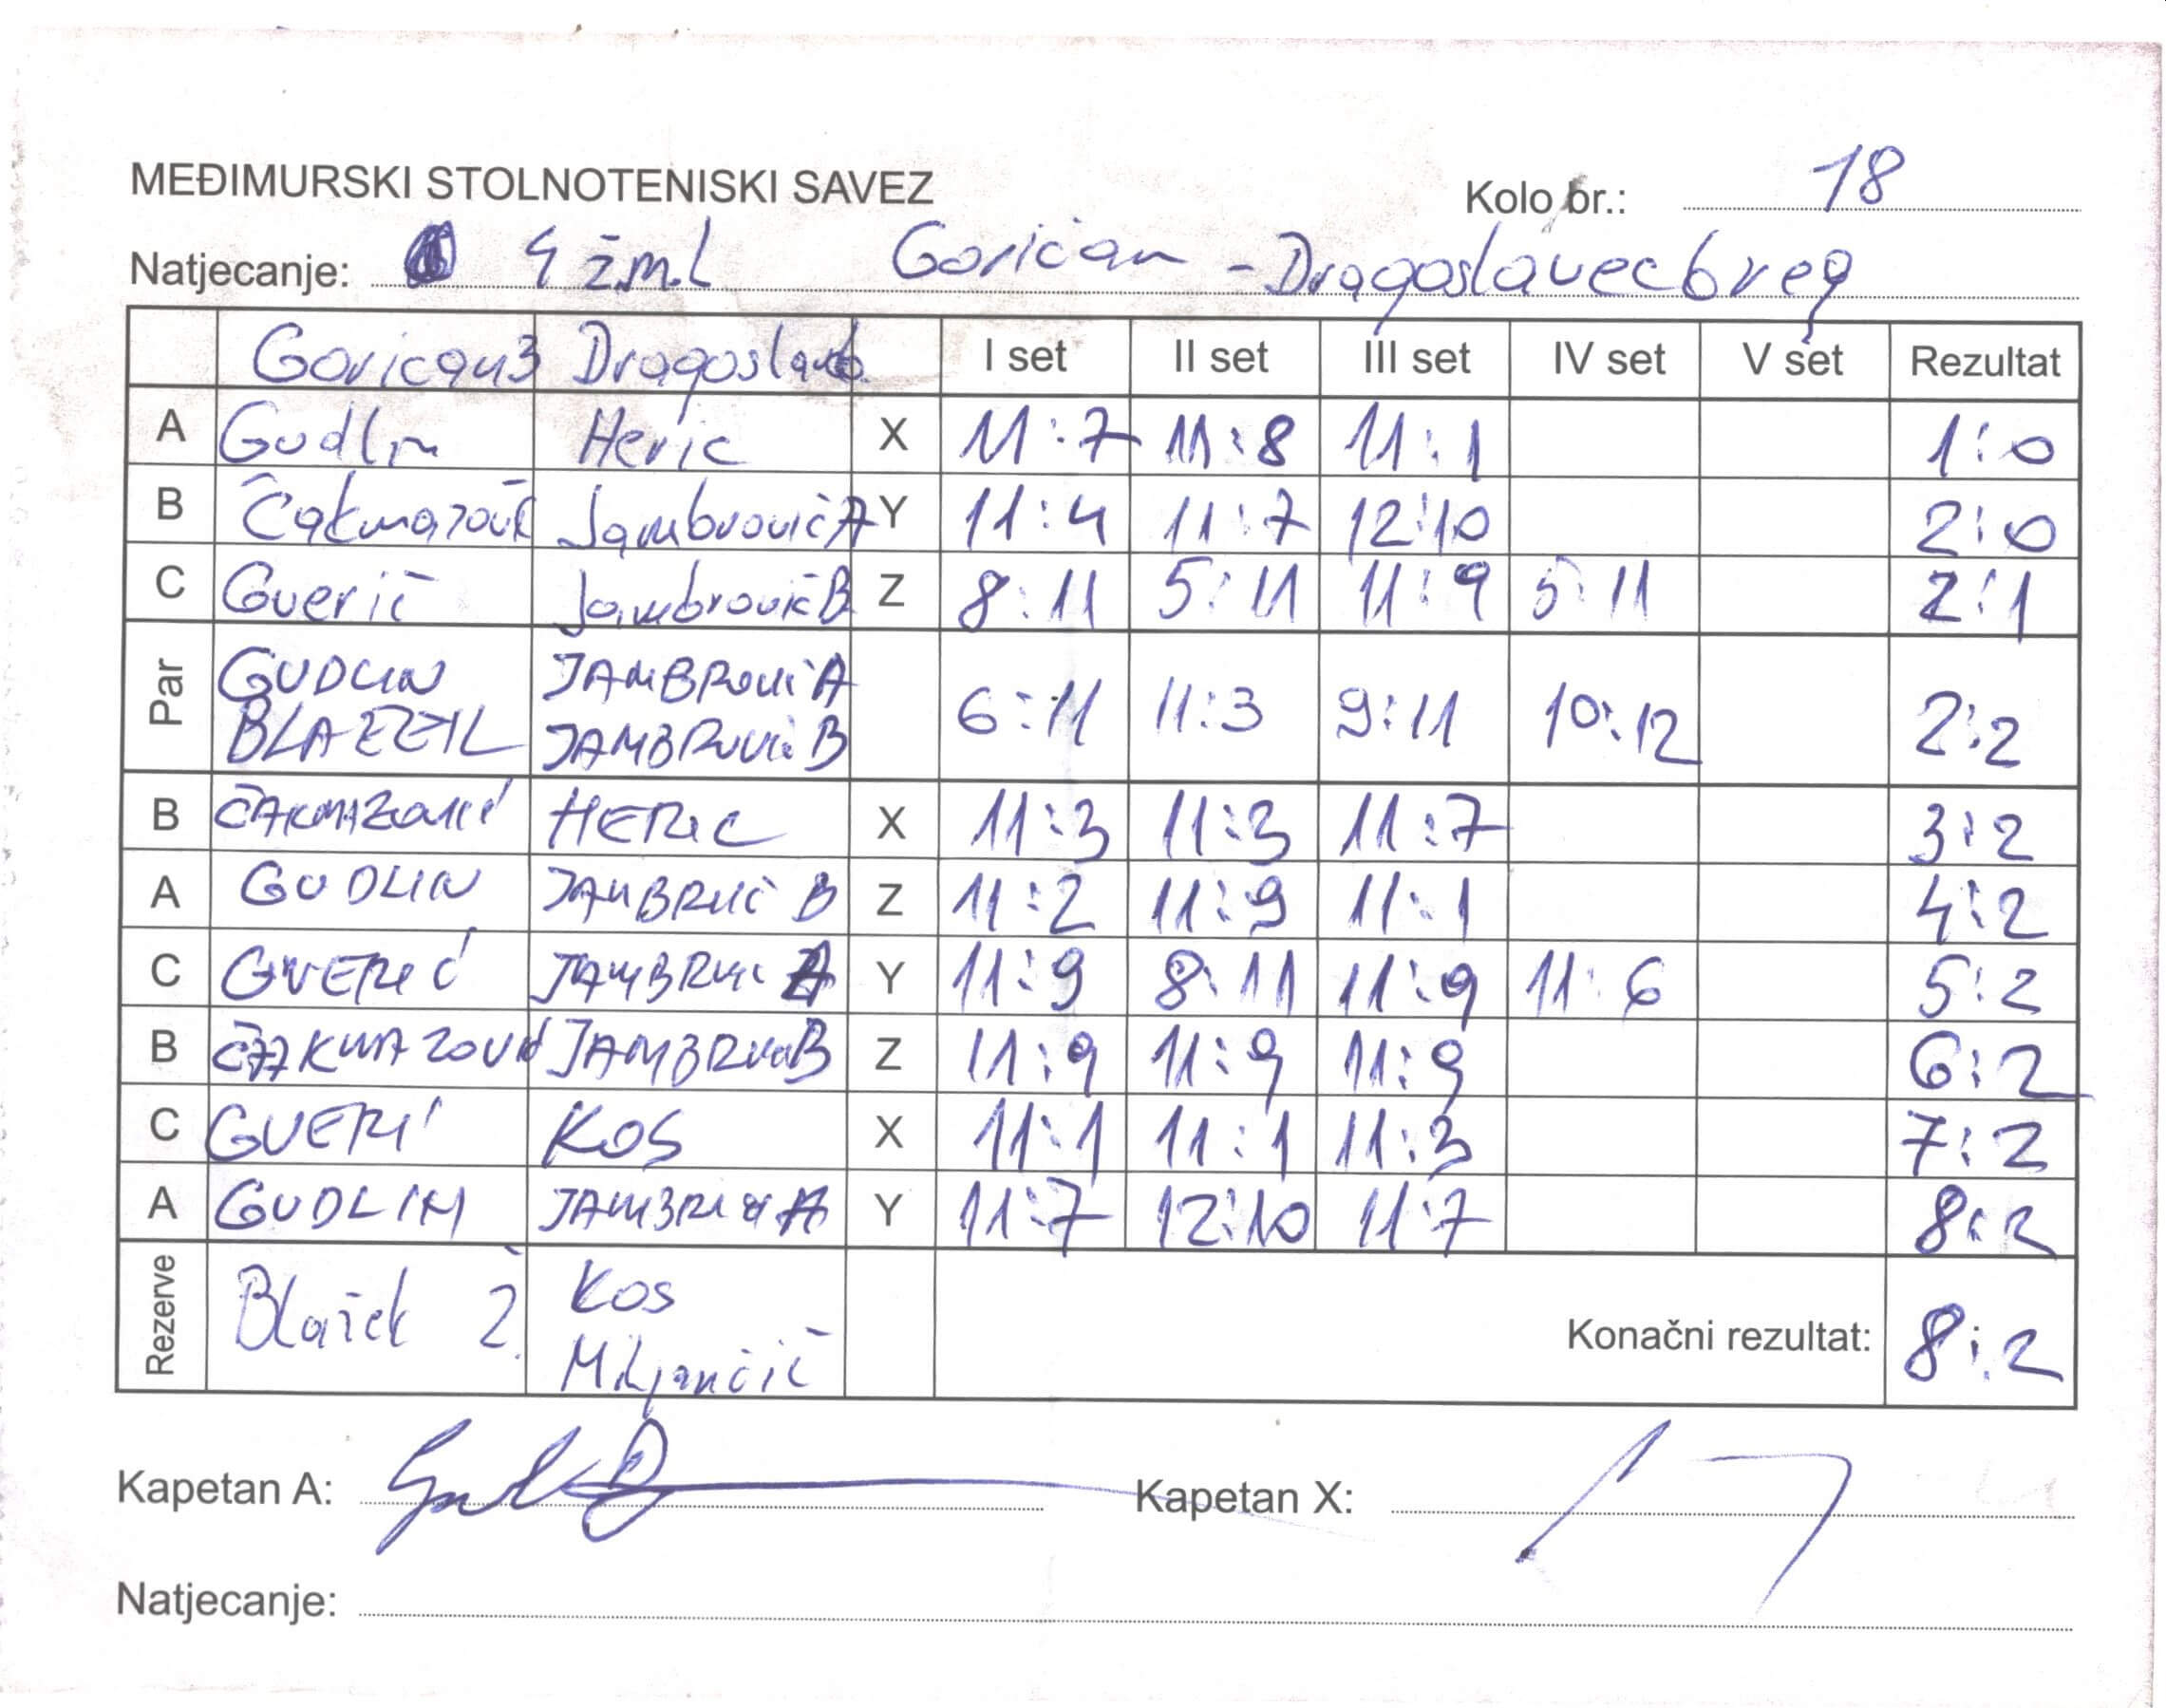 MEĐIMURSKI STOLNOTENISKI SAVEZ Kolo br.: 18
Natjecanje: 4 ž.m.l Goričan - Dragoslavec breg
Goričan 3 Dragoslav b. I set II set III set IV set V set Rezultat
A Gudlin Heric X 11:7 11:8 11:1 1:0
B Čakmazović Jambrović A Y 11:4 11:7 12:10 2:0
C Gverić Jambrović B Z 8:11 5:11 11:9 5:11 2:1
Par GUDLIN JAMBROVIĆ A 6:11 11:3 9:11 10:12 2:2
JAMBROVIĆ B
B ČAKMAZOVIĆ HERIC X 11:3 11:3 11:7 3:2
A GUDLIN JAMBRVIĆ B Z 11:2 11:9 11:1 4:2
C GVERIĆ A Y 11:9 8:11 11:9 11:6 5:2
B ČAKMAZOVIĆ B Z 11:9 11:9 11:9 6:2
C GVERI X KOS 11:1 11:1 11:3 7:2
A GUDLIN A Y 11:7 12:10 11:7 8:2
Rezerve Blažek Ž. Kos
Miljančić
Konačni rezultat: 8:2
Kapetan A: Kapetan X:
Natjecanje: